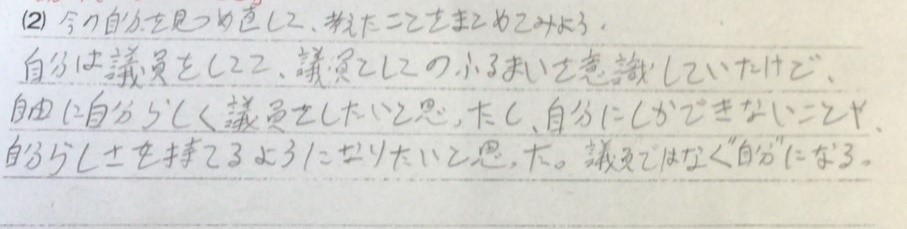 (2) 今の自分を見つめ直して、考えたことをまとめてみよう.
自分は議員をしてて、議員としてのふるまいを意識していたけど、
自由に自分らしく議員をしたいと思ったし、自分にしかできないことや、
自分らしさを持てるようになりたいと思った。議員ではなく"自分"になる。